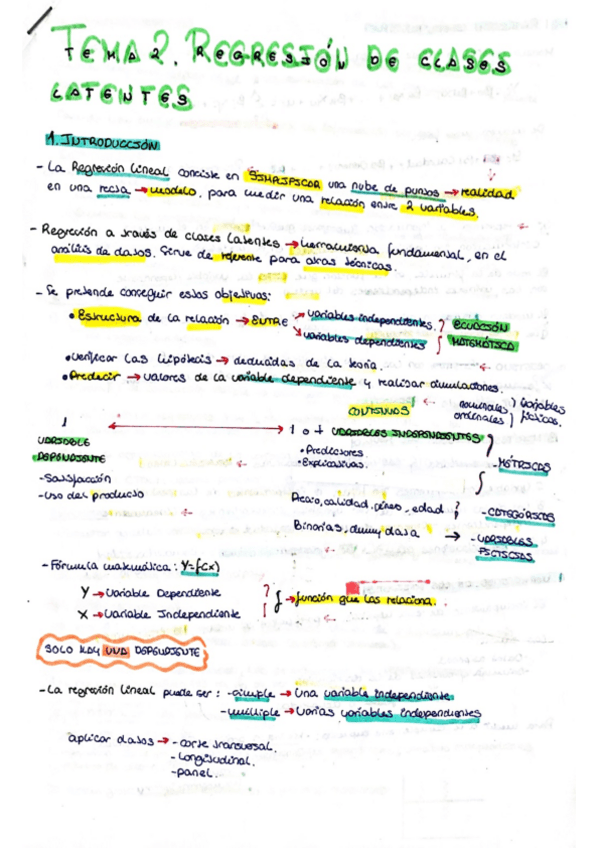 TEMA 2. REGRESIÓN DE CLASES
LATENTES
1. INTRODUCCIÓN
- La Regresión Lineal consiste en SIMPLIFICAR una nube de puntos → realidad
en una recta → modelo, para medir una relación entre 2 variables.
- Regresión a través de clases latentes → herramienta fundamental, en el
análisis de datos. Sirve de referente para otras técnicas.
- Se pretende conseguir estos objetivos:
• Estructura de la relación → ENTRE → variables independientes. ECUACIÓN
variables dependientes MATEMÁTICA
• Verificar las hipótesis → deducidas de la teoría.
• Predecir → valores de la variable dependiente y realizar simulaciones.
CONTINUAS nominales, ordinales } variables ficticias.
1 ↔ 1 o + VARIABLES INDEPENDIENTES
VARIABLE
DEPENDIENTE
• Predictores
• Explicativas.
- MÉTRICAS
- Satisfacción
- Uso del producto
Precio, calidad, género, edad - CATEGÓRICAS
Binarias, dummy, dasa → - VARIABLES
FICTICIAS
- Fórmula matemática: Y=f(x)
Y → Variable Dependiente
X → Variable Independiente
f → función que las relaciona.
SOLO HAY UNA DEPENDIENTE
- La regresión lineal puede ser: - simple → Una variable independiente
- múltiple → Varias variables independientes
aplicar datos → - corte transversal.
- longitudinal.
- panel.